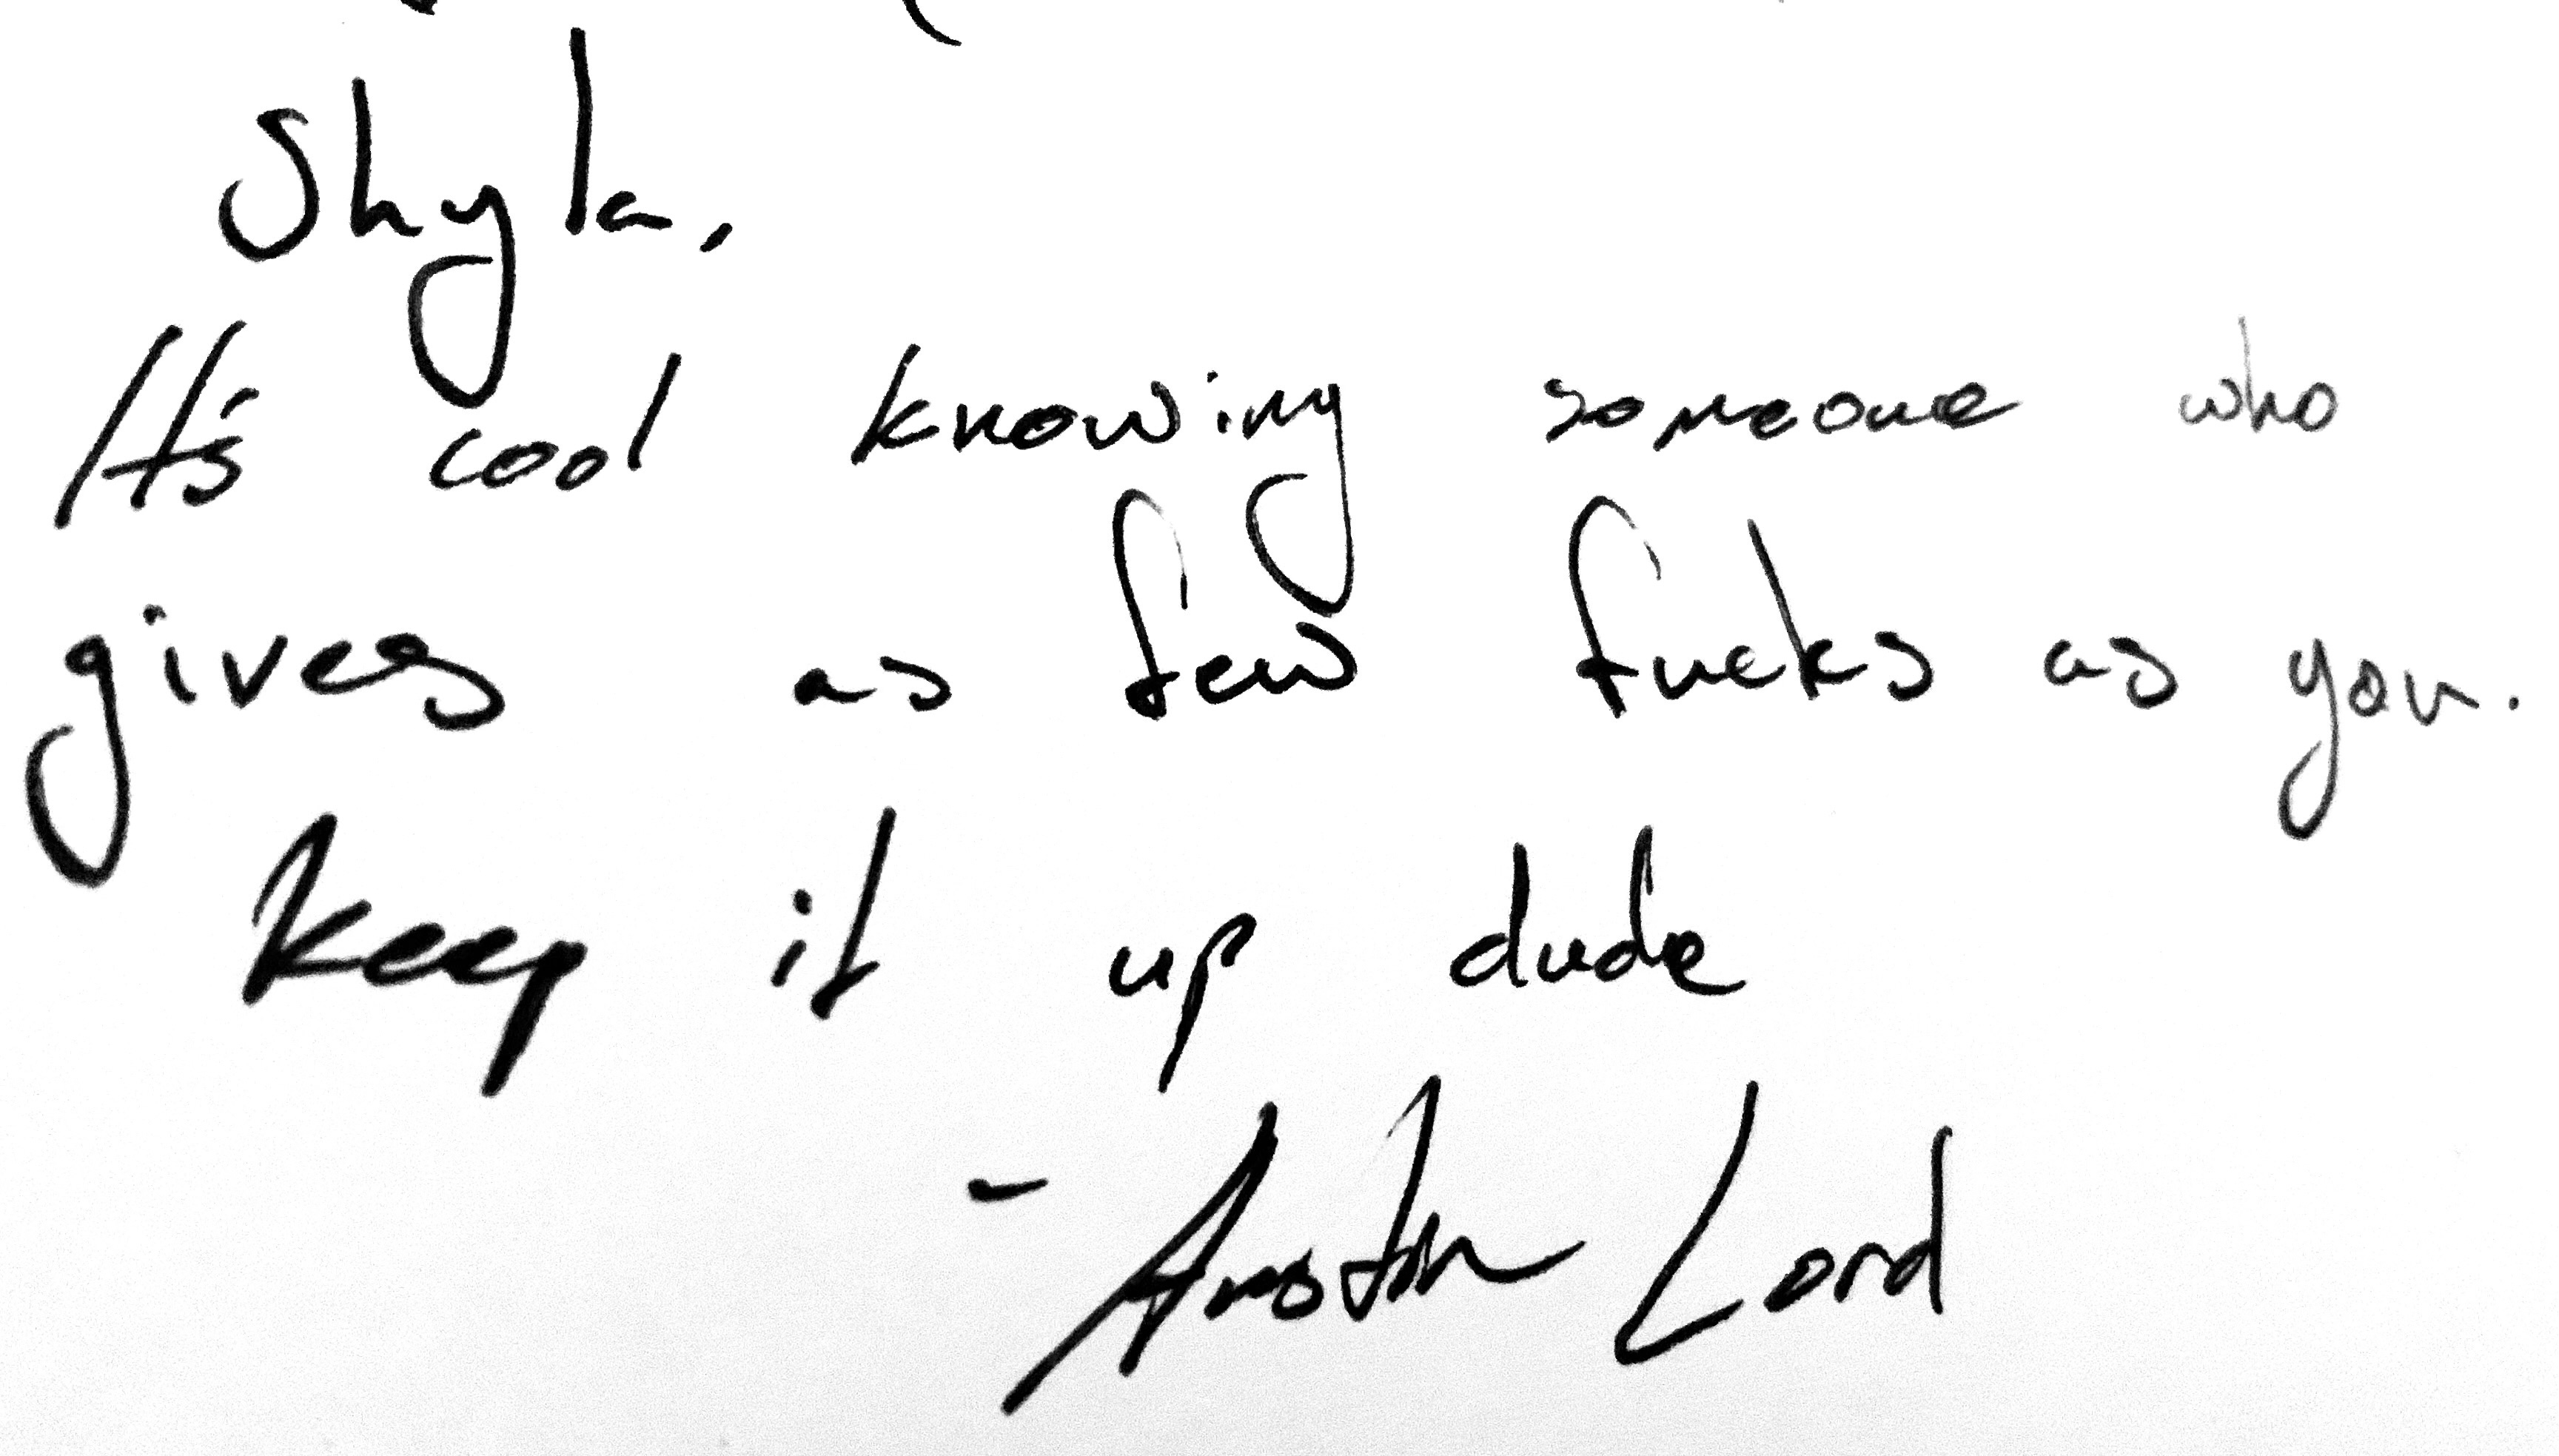 Shyla,
It's cool knowing someone who
gives as few fucks as you.
Keep it up dude
- Austin Lord